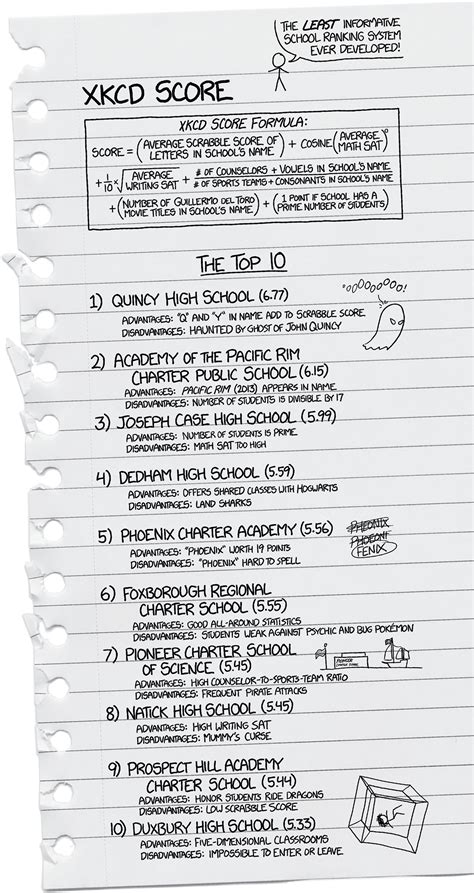 THE LEAST INFORMATIVE
SCHOOL RANKING SYSTEM
EVER DEVELOPED!
XKCD SCORE
XKCD SCORE FORMULA:
SCORE = (AVERAGE SCRABBLE SCORE OF LETTERS IN SCHOOL'S NAME) + COSINE(AVERAGE MATH SAT)°
+ 1/10 × √AVERAGE WRITING SAT + # OF COUNSELORS + VOWELS IN SCHOOL'S NAME / # OF SPORTS TEAMS + CONSONANTS IN SCHOOL'S NAME
+ (NUMBER OF GUILLERMO DEL TORO MOVIE TITLES IN SCHOOL'S NAME) + (1 POINT IF SCHOOL HAS A PRIME NUMBER OF STUDENTS)
THE TOP 10
1) QUINCY HIGH SCHOOL (6.77)
ADVANTAGES: "Q" AND "Y" IN NAME ADD TO SCRABBLE SCORE
DISADVANTAGES: HAUNTED BY GHOST OF JOHN QUINCY
"OOOOOOOO!
2) ACADEMY OF THE PACIFIC RIM
CHARTER PUBLIC SCHOOL (6.15)
ADVANTAGES: PACIFIC RIM (2013) APPEARS IN NAME
DISADVANTAGES: NUMBER OF STUDENTS IS DIVISIBLE BY 17
3) JOSEPH CASE HIGH SCHOOL (5.99)
ADVANTAGES: NUMBER OF STUDENTS IS PRIME
DISADVANTAGES: MATH SAT TOO HIGH
4) DEDHAM HIGH SCHOOL (5.59)
ADVANTAGES: OFFERS SHARED CLASSES WITH HOGWARTS
DISADVANTAGES: LAND SHARKS
5) PHOENIX CHARTER ACADEMY (5.56)
ADVANTAGES: "PHOENIX" WORTH 19 POINTS
DISADVANTAGES: "PHOENIX" HARD TO SPELL
PHEONIX
FENIX
6) FOXBOROUGH REGIONAL
CHARTER SCHOOL (5.55)
ADVANTAGES: GOOD ALL-AROUND STATISTICS
DISADVANTAGES: STUDENTS WEAK AGAINST PSYCHIC AND BUG POKÉMON
7) PIONEER CHARTER SCHOOL
OF SCIENCE (5.45)
ADVANTAGES: HIGH COUNSELOR-TO-SPORTS-TEAM RATIO
DISADVANTAGES: FREQUENT PIRATE ATTACKS
8) NATICK HIGH SCHOOL (5.45)
ADVANTAGES: HIGH WRITING SAT
DISADVANTAGES: MUMMY'S CURSE
9) PROSPECT HILL ACADEMY
CHARTER SCHOOL (5.44)
ADVANTAGES: HONOR STUDENTS RIDE DRAGONS
DISADVANTAGES: LOW SCRABBLE SCORE
10) DUXBURY HIGH SCHOOL (5.33)
ADVANTAGES: FIVE-DIMENSIONAL CLASSROOMS
DISADVANTAGES: IMPOSSIBLE TO ENTER OR LEAVE